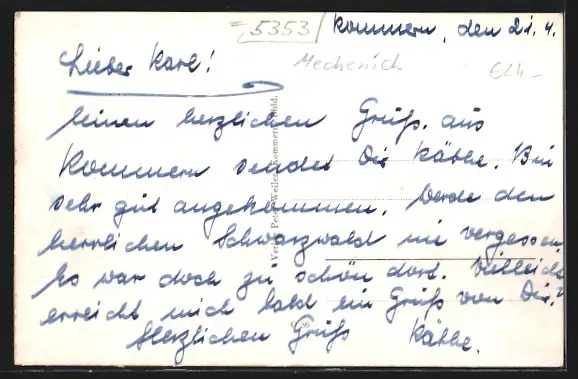 5353 Kommern, den 21. 4.
Mechernich
Lieber Karl!
Einen herzlichen Gruß. aus
Kommern sendet Dir Käthe. Bin
sehr gut angekommen. Werde den
herrlichen Schwarzwald nie vergessen.
Es war doch zu schön dort. Vielleicht
erreicht mich bald ein Gruß von Dir.?
Herzlichen Gruß Käthe.
Verlag Peter Weiler, Kommern